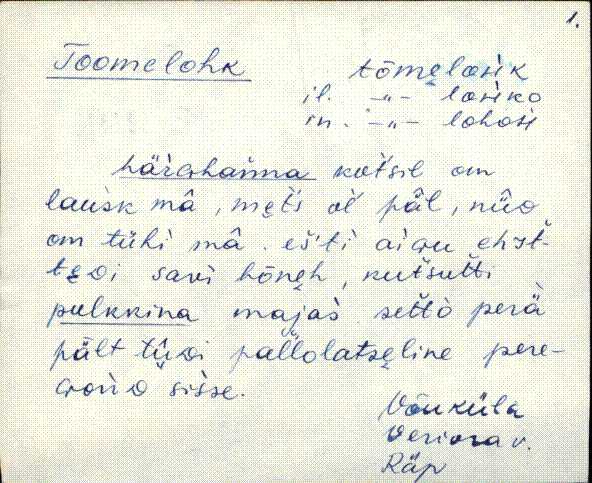 1.
Toomelohk
tõmęlośik
il. —„— lośiko
in. —„— lohośi
härghańna kot́śil om
lausk mā, męt́s ol' päl, nüo
om tühi mā. eš́ti aigu ehit-
tędi savi hõnęh, kut́śut́ti
pulkkina majas set́to perä
pält tūdi pallolatsęline pere-
sisse.
Võuküla
Veriora v.
Räp